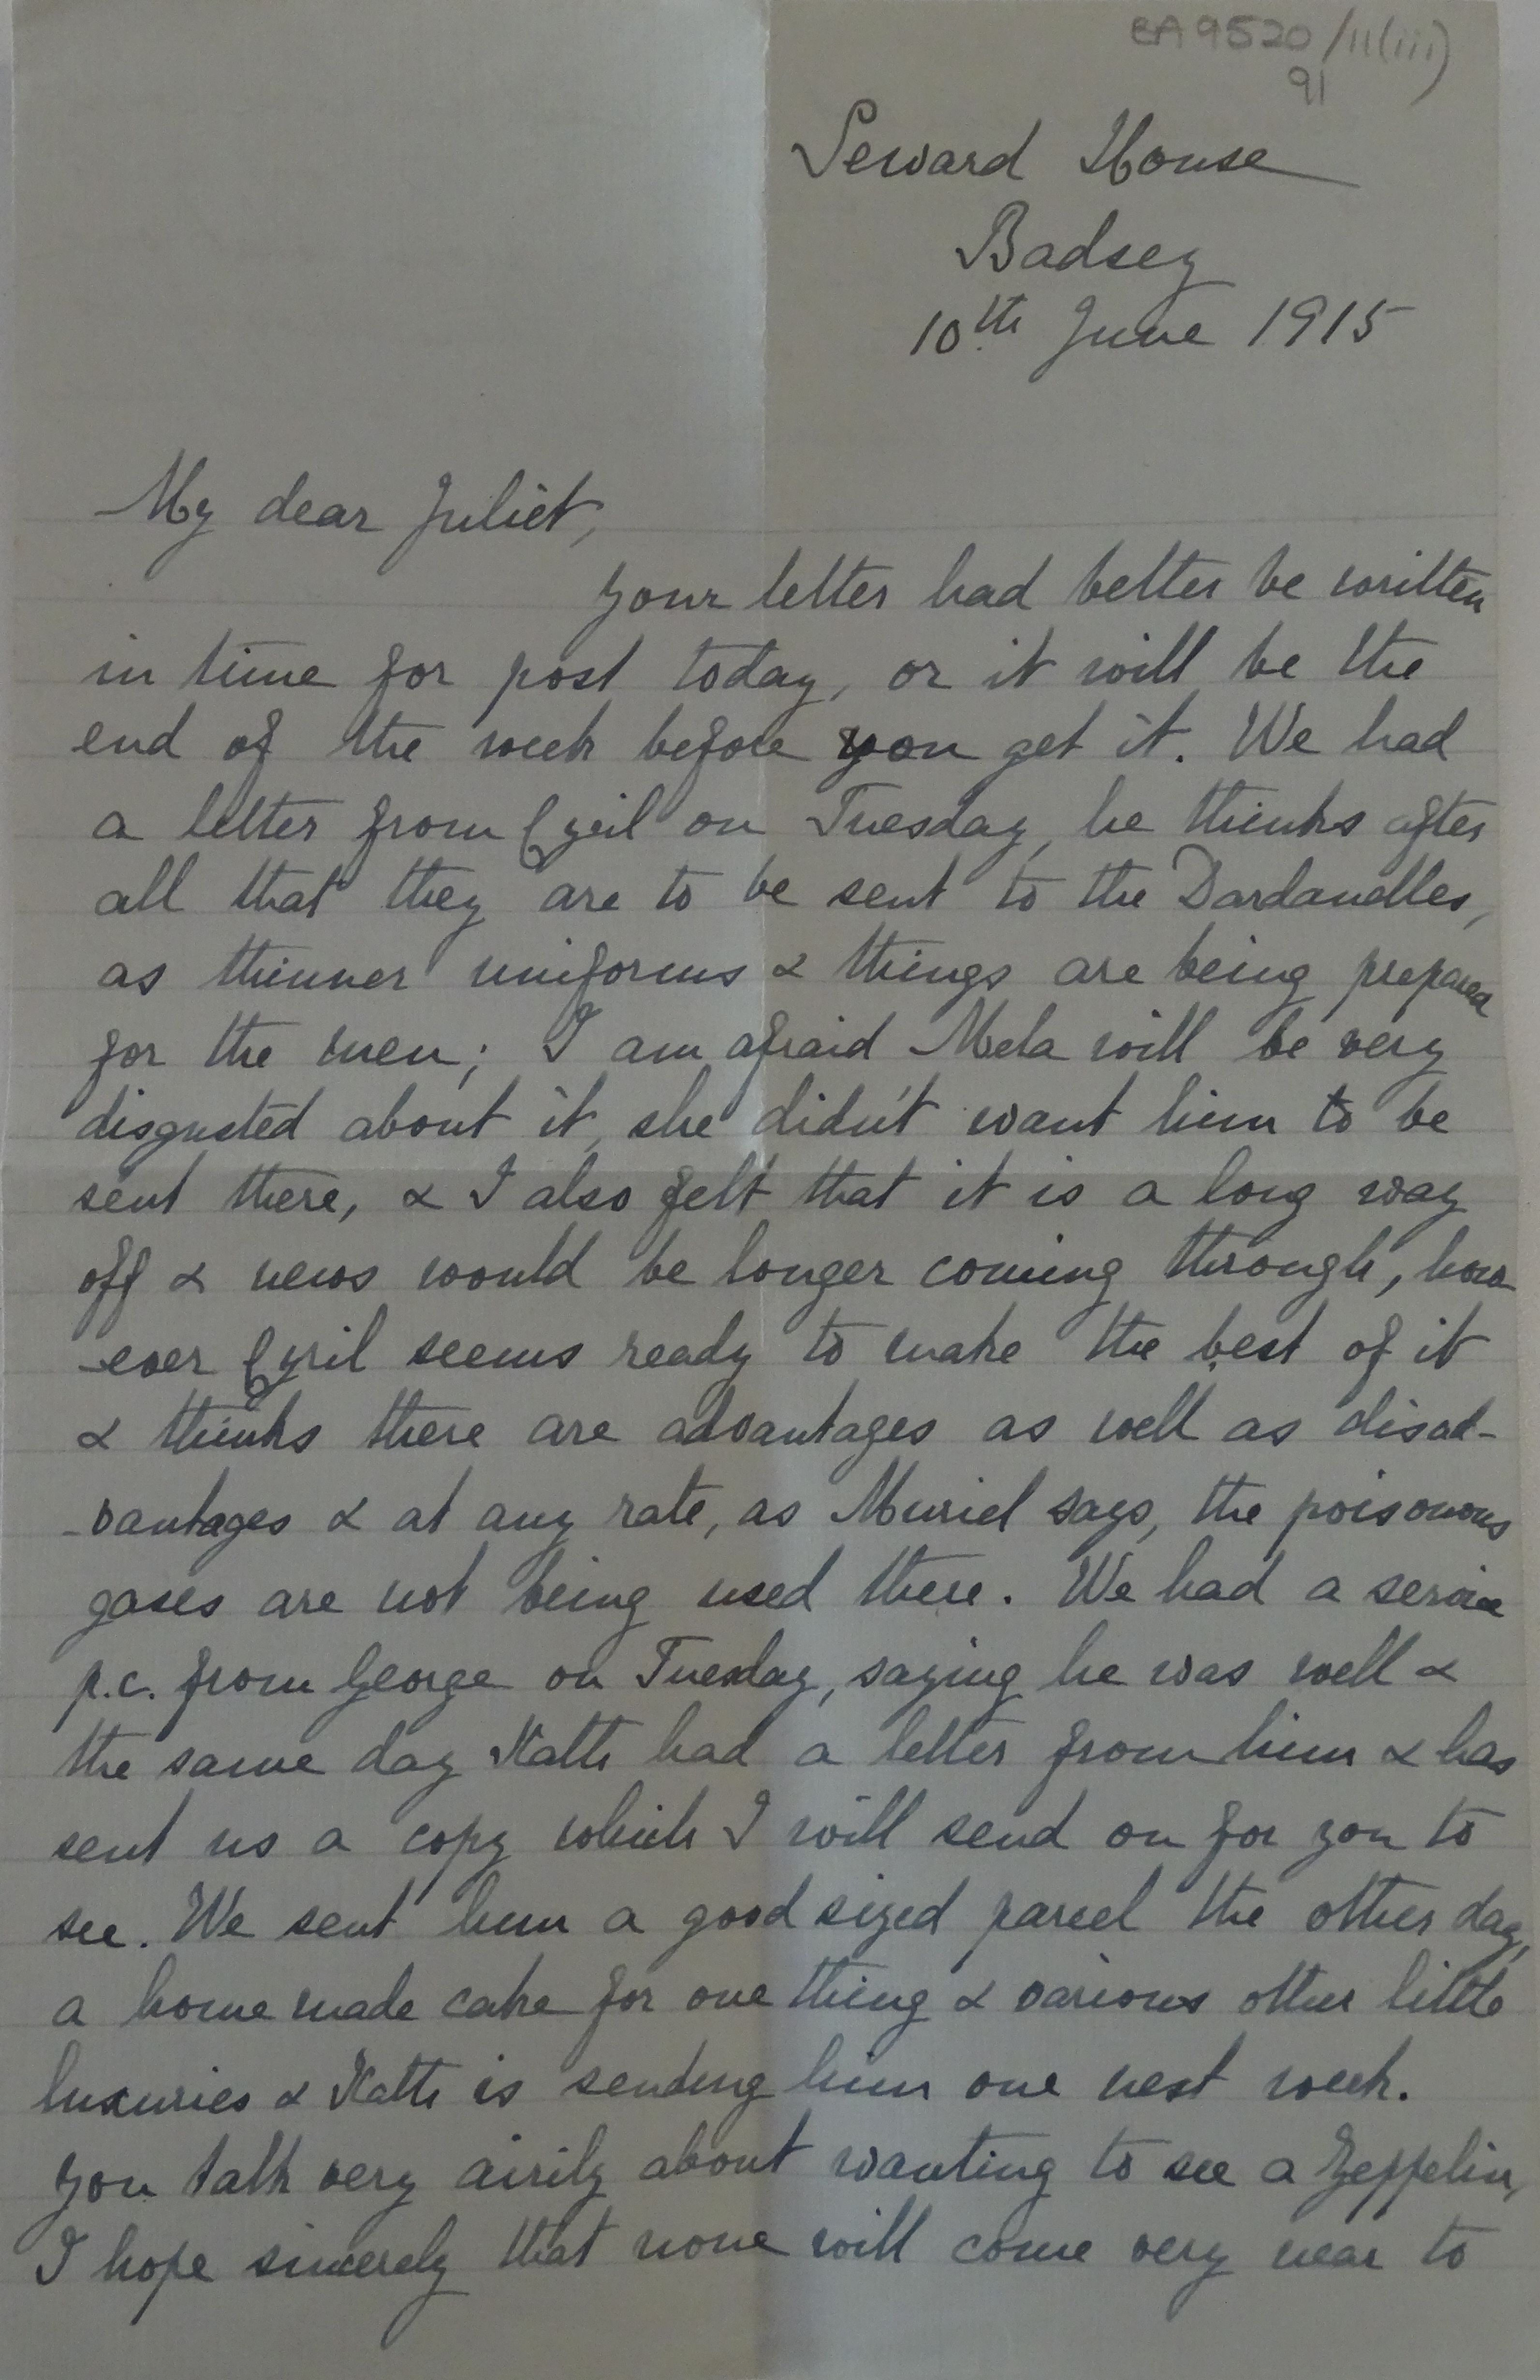 BA9520/11(iii)
91
Seward House
Badsey
10th June 1915
My dear Juliet,
Your letter had better be written
in time for post today, or it will be the
end of the week before you get it. We had
a letter from Cyril on Tuesday, he thinks after
all that they are to be sent to the Dardanelles,
as thinner uniforms & things are being prepared
for the men; I am afraid Mela will be very
disgusted about it, she didn't want him to be
sent there, & I also felt that it is a long way
off & news would be longer coming through, how
-ever Cyril seems ready to make the best of it
& thinks there are advantages as well as disad-
-vantages & at any rate, as Muriel says, the poisonous
gases are not being used there. We had a service
p.c. from George on Tuesday, saying he was well &
the same day Kath had a letter from him & has
sent us a copy which I will send on for you to
see. We sent him a good sized parcel the other day,
a home made cake for one thing & various other little
luxuries & Kath is sending him one next week.
You talk very airily about wanting to see a Zeppelin,
I hope sincerely that none will come very near to